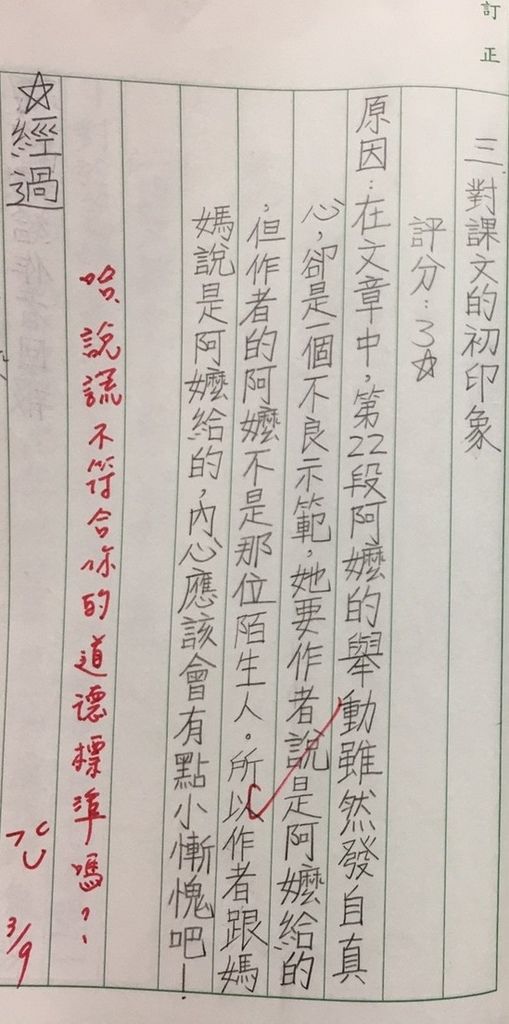 訂正
三對課文的初印象
評分：3☆
原因：在文章中，第22段阿嬤的舉動雖然發自真
心，卻是一個不良示範，她要作者說是阿嬤給的
，但作者的阿嬤不是那位陌生人。所以作者跟媽
媽說是阿嬤給的，內心應該會有點小慚愧吧！
哈，說謊不符合你的道德標準嗎？
3/9
☆經過